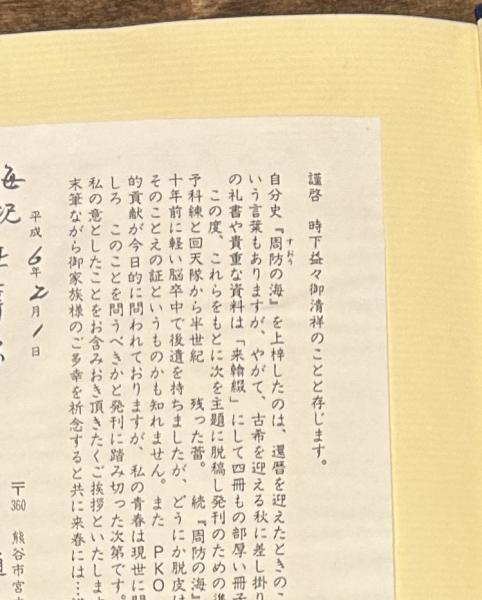 謹啓　時下益々御清祥のことと存じます。
自分史『周防の海』を上梓したのは、還暦を迎えたときのこ
すおう
いう言葉もありますが、やがて、古希を迎える秋に差し掛り
の礼書や貴重な資料は「来翰綴」にして四冊もの部厚い冊子
この度、これらをもとに次を主題に脱稿し発刊のための準
予科練と回天隊から半世紀　残った蕾。　続『周防の海』
十年前に軽い脳卒中で後遺を持ちましたが、どうにか脱皮は
そのことえの証というものかも知れません。また　PKO
的貢献が今日的に問われておりますが、私の青春は現世に問
しろ　このことを問うべきかと発刊に踏み切った次第です。
私の意としたことをお含みおき頂きたくご挨拶といたします
末筆ながら御家族様のご多幸を祈念すると共に来春には…
平成6年2月1日
〒360　熊谷市宮